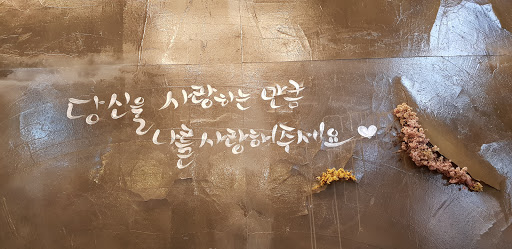 당신을 사랑하는 만큼
나를 사랑해주세요 ♥